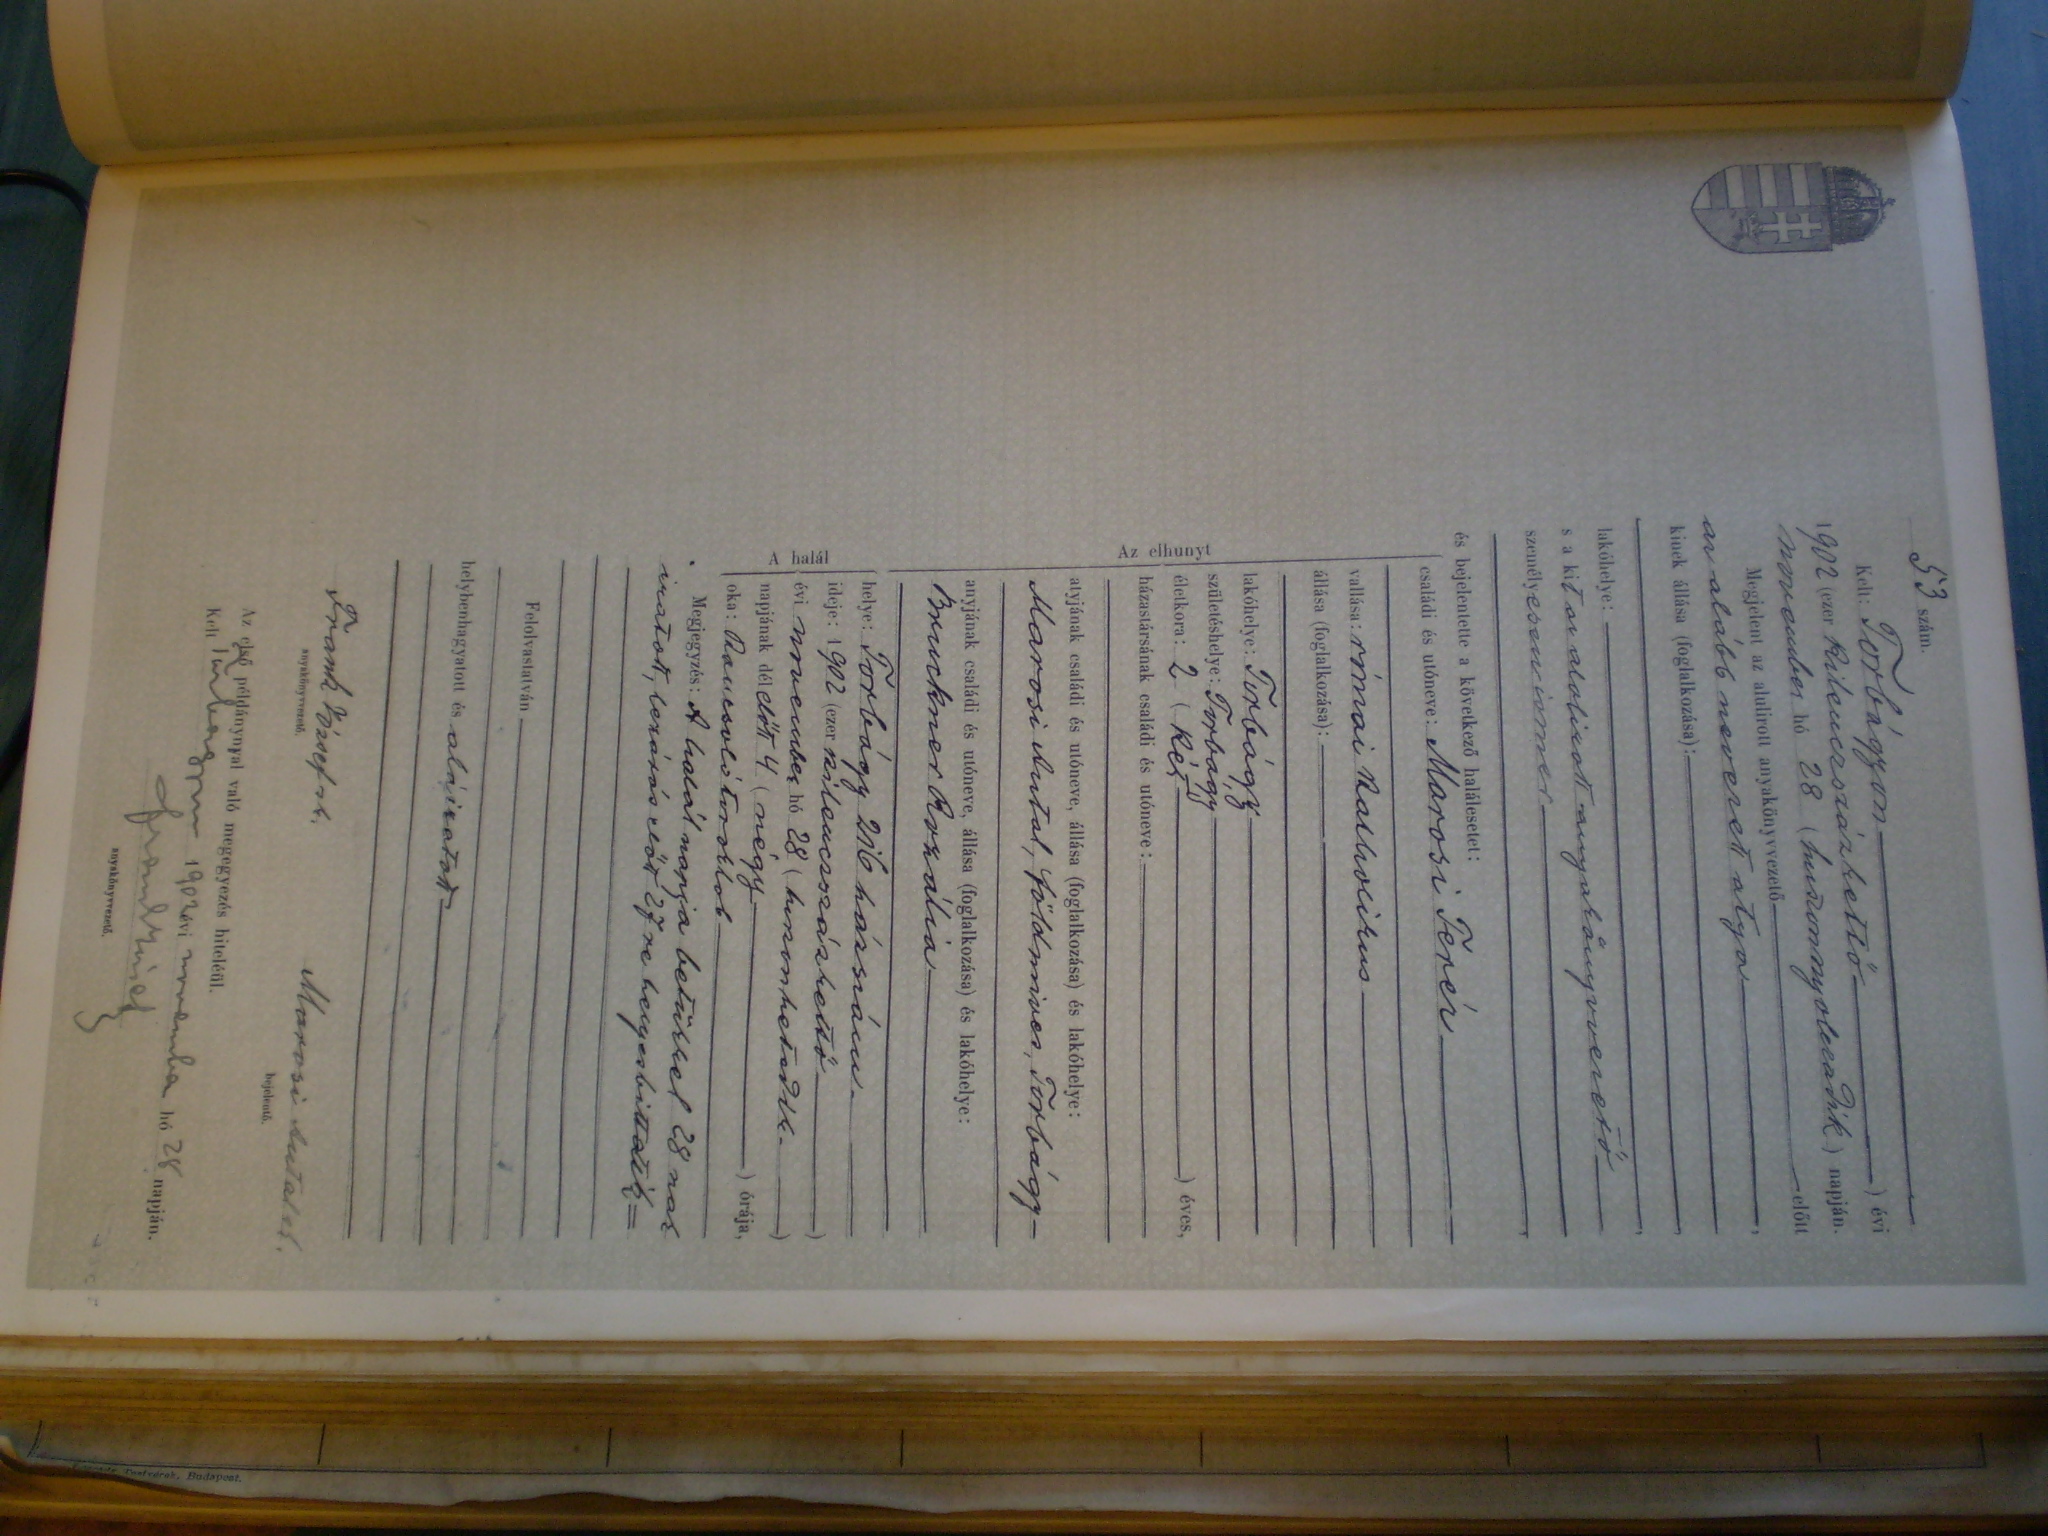 53 szám.
Kelt: Torbágyon ) évi
1902 (ezer kilencszázkettő
november hó 28 ( huszonnyolcadik ) napján.
Megjelent az alulirott anyakönyvvezető előtt
az alább nevezett atya ,
kinek állása (foglalkozása):
,
lakóhelye:
s a kit az alulirott anyakönyvvezető
személyesen ismer
,
és bejelentette a következő halálesetet:
Az elhunyt
családi és utóneve: Marosi Teréz
vallása: római katholikus
állása (foglalkozása):
lakóhelye: Torbágy
születéshelye: Torbágy
életkora: 2 ( két ) éves,
házastársának családi és utóneve:
atyjának családi és utóneve, állása (foglalkozása) és lakóhelye:
Marosi Antal, földmives, Torbágy
anyjának családi és utóneve, állása (foglalkozása) és lakóhelye:
Bruckner Rozália
A halál
helye: Torbágy 216 házszám
ideje: 1902 (ezer kilencszázkettő )
évi november hó 28 ( huszonhetedik )
napjának dél előtt 4 ( négy ) órája,
oka: Roncsoló toroklob
Megjegyzés: A halál napja betükkel 28 nak
iratott, lezárás előtt 27 re helyesbittetik
Felolvastatván
helybenhagyatott és aláiratott
Frank József sk.
anyakönyvvezető.
Marosi Antal sk.
bejelentő.
Az első példánynyal való megegyezés hiteléül.
Kelt Torbágyon 1902 évi november hó 28 napján.
Frank József
anyakönyvvezető.
Testvérek, Budapest.